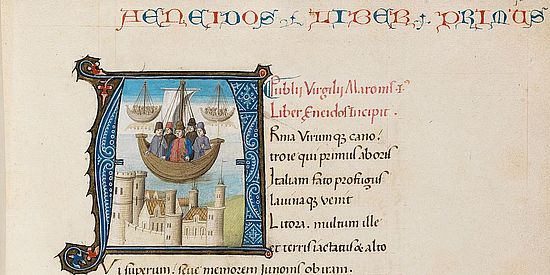 AENEIDOS LIBER PRIMUS
Publij Virgilij Maronis
Liber Eneidos Incipit.
Rma Virumq cano,
troie qui primus ab oris
Italiam fato profugus
lauinaq venit
Litora, multum ille
et terris iactatus & alto
Vi superum, seue memorem Junonis ob iram.